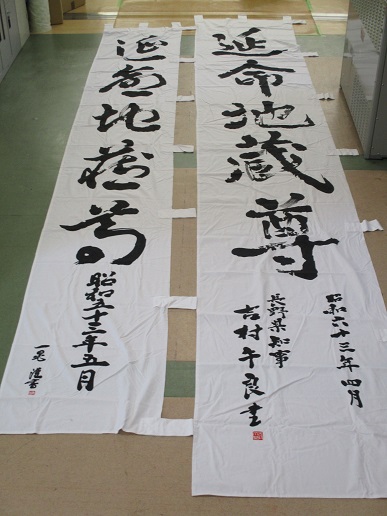 延命地蔵尊
昭和六十三年四月
長野県知事
吉村午良書
延命地蔵尊
昭和五十三年五月